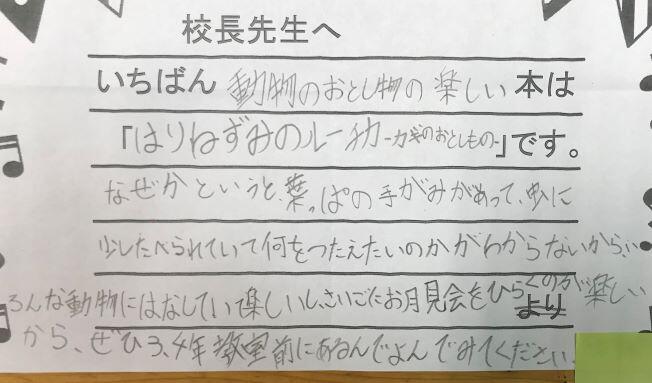 校長先生へ
いちばん 動物のおとし物の 楽しい 本は
「はりねずみのルーチカ -カギのおとしもの-」です。
なぜかというと、葉っぱの手がみがあって、虫に
少したべられていて何をつたえたいのかがわからないから、い
ろんな動物にはなしていて楽しいし、さいごにお月見会をひらくのが楽しい
から、ぜひ3、4年教室前にあるんでよんでみてください。